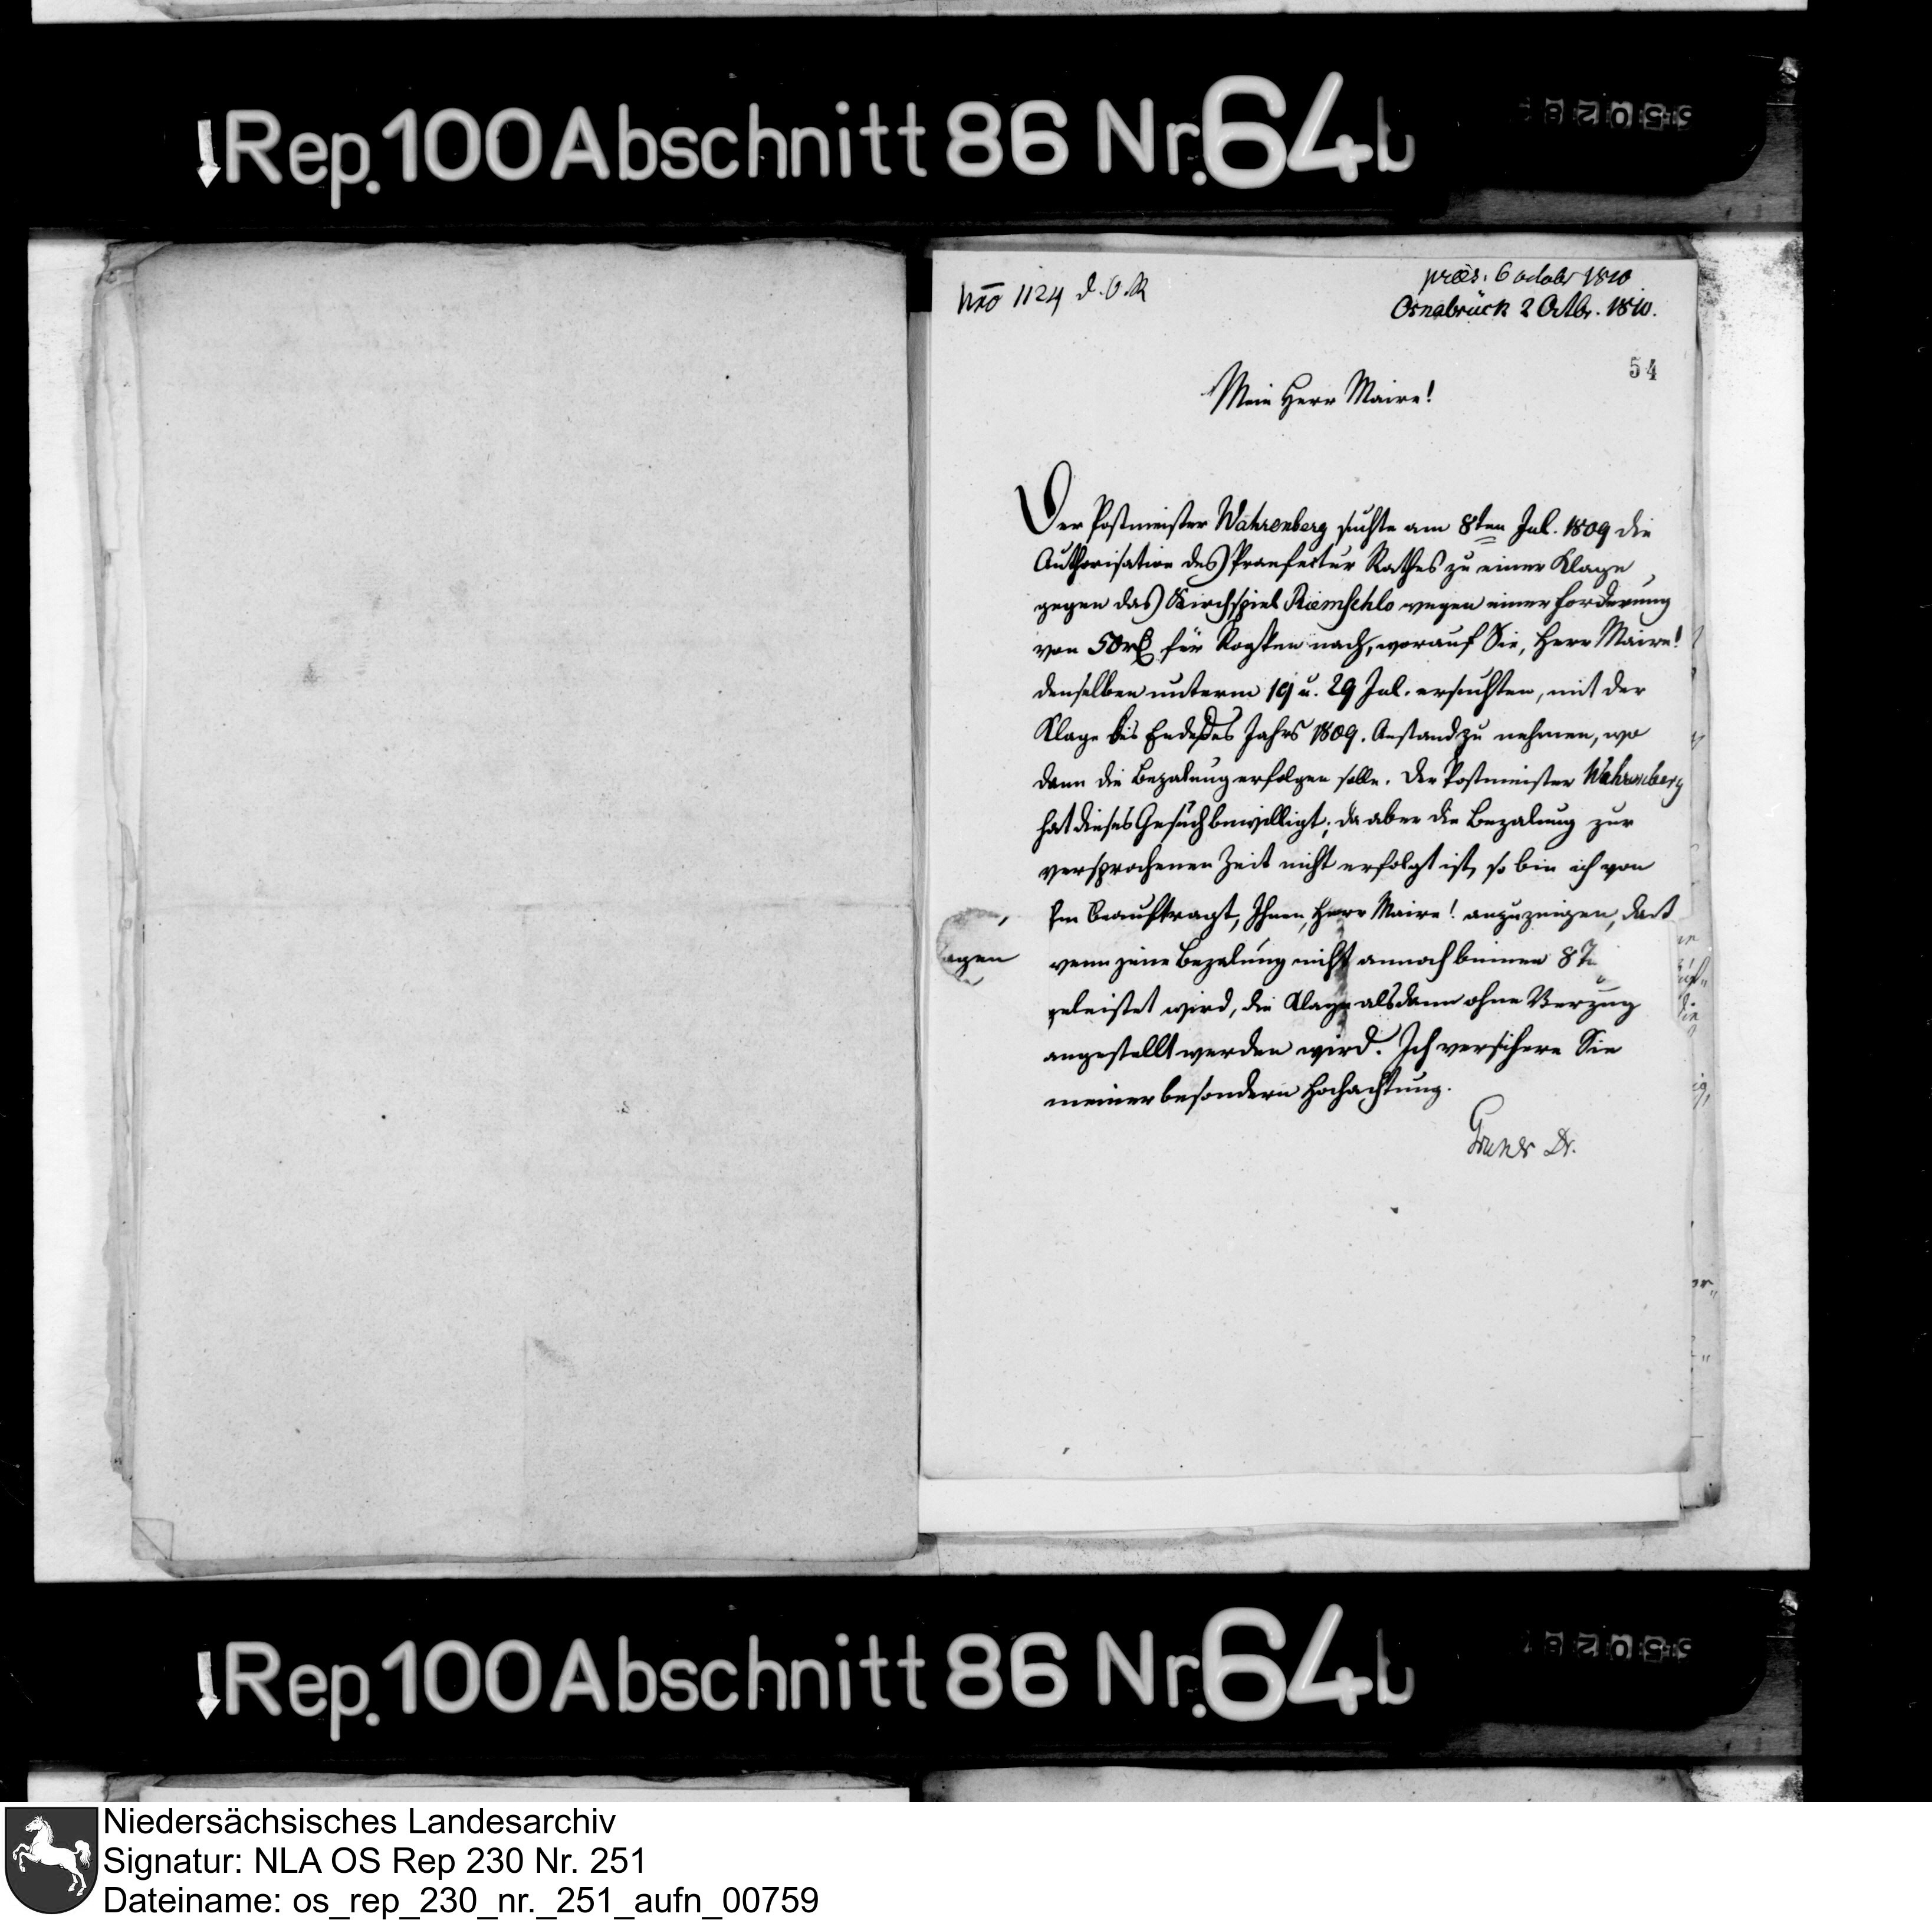 Rep. 100 Abschnitt 86 Nr. 64b
Nro 1124 d. O. R
praes. 6 octobr 1810
Osnabrück 2 Octbr. 1810.
54
Mein Herr Maire!
Der Postmeister Wahrenberg suchte am 8ten Jul. 1809 die
Authorisation des Praefectur Rathes zu einer Klage
gegen das Kirchspiel Riemschlo wegen einer Forderung
von 50 rt für Rogken nach, worauf Sie, Herr Maire!
denselben unterm 19 u. 29 Jul. ersuchten, mit der
Klage bis Ende des Jahrs 1809. Anstand zu nehmen, wo
dann die Bezalung erfolgen solle. Der Postmeister Wahrenberg
hat dieses Gesuch bewilligt; da aber die Bezalung zur
versprochenen Zeit nicht erfolgt ist, so bin ich von
Ihm beauftragt, Ihnen, Herr Maire! anzuzeigen, daß
wenn jene Bezalung nicht annoch binnen 8 T
agen
geleistet wird, die Klage alsdann ohne Verzug
angestellt werden wird. Ich versichere Sie
meiner besondern Hochachtung.
Gruner Dr.
Rep. 100 Abschnitt 86 Nr. 64b
Niedersächsisches Landesarchiv
Signatur: NLA OS Rep 230 Nr. 251
Dateiname: os_rep_230_nr._251_aufn_00759